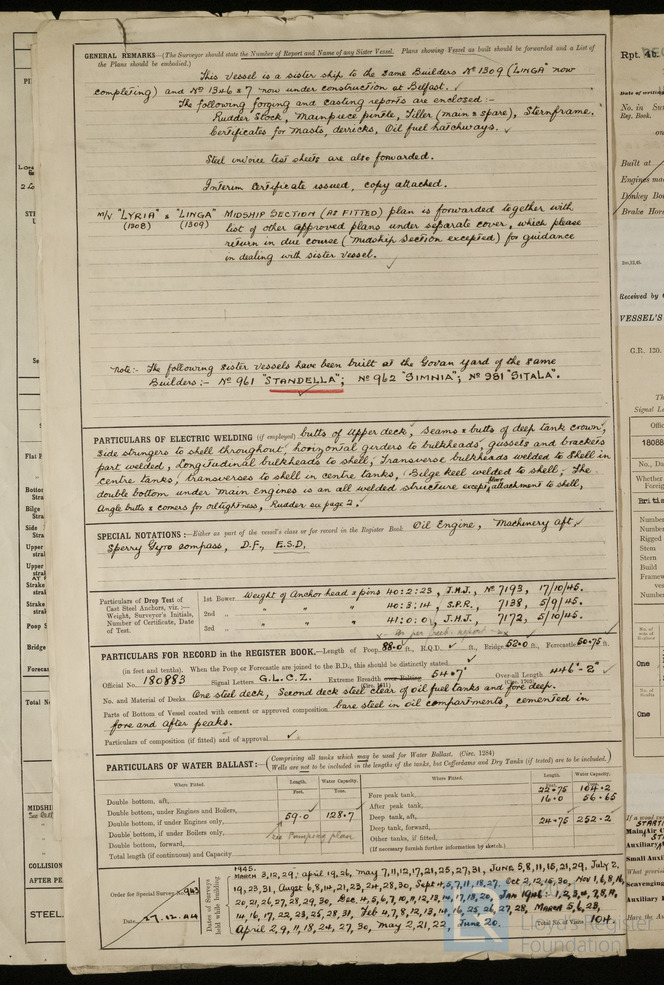 GENERAL REMARKS—(The Surveyor should state the Number of Report and Name of any Sister Vessel. Plans showing Vessel as built should be forwarded and a List of
the Plans should be embodied.)
This vessel is a sister ship to the same Builders No 1309 ("LINGA" now
completing) and No 1346 & 7 now under construction at Belfast.
The following forging and casting reports are enclosed :-
Rudder Stock, Mainpiece pintle, Tiller (main & spare), Sternframe.
Certificates for Masts, derricks, Oil fuel hatchways.
Steel invoice test sheets are also forwarded.
Interim Certificate issued, copy attached.
M/V "LYRIA" & "LINGA" MIDSHIP SECTION (AS FITTED) plan is forwarded together with
(1308) (1309) list of other approved plans under separate cover, which please
return in due course (Midship Section excepted) for guidance
in dealing with sister vessel.
Note:- The following sister vessels have been built at the Govan yard of the same
Builders :- No 961 "STANDELLA"; No 962 "SIMNIA"; No 981 "SITALA".
PARTICULARS OF ELECTRIC WELDING (if employed) butts of upper deck, seams & butts of deep tank crown,
side stringers to shell throughout, horizontal girders to bulkheads, gussets and brackets
part welded, Longitudinal bulkheads to shell, Transverse bulkheads welded to shell in
centre tanks, transverses to shell in centre tanks, Bilge keel welded to shell, The
double bottom under main engines is an all welded structure except attachment to shell,
Angle butts & corners for oiltightness, Rudder see page 2.
SPECIAL NOTATIONS:—Either as part of the vessel's class or for record in the Register Book. Oil Engine, Machinery Aft,
Sperry Gyro compass, D.F., E.S.D.
Particulars of Drop Test of
Cast Steel Anchors, viz. :—
Weight, Surveyor's Initials,
Number of Certificate, Date
of Test.
1st Bower Weight of Anchor head & pins 40:2:23, J.H.J., No 7193, 17/10/45.
2nd " " " " 40:3:14, S.P.R., 7138, 5/9/45.
3rd " " " " 41:0:0, J.H.J., 7172, 5/10/45.
PARTICULARS FOR RECORD in the REGISTER BOOK.—Length of Poop 88.0 ft., R.Q.D. ft., Bridge 52.0 ft., Forecastle 50.75 ft.
(in feet and tenths). When the Poop or Forecastle are joined to the B.D., this should be distinctly stated
Official No. 180883 Signal Letters G.L.C.Z. Extreme Breadth over Belting 54'7" Over-all Length 446'-2"
(Circ. 1611) (Circ. 1703)
No. and Material of Decks One steel deck, Second deck steel clear of oil fuel tanks and fore deep.
Parts of Bottom of Vessel coated with cement or approved composition bare steel in oil compartments, cemented in
fore and after peaks.
Particulars of composition (if fitted) and of approval
PARTICULARS OF WATER BALLAST:—(Comprising all tanks which may be used for Water Ballast. (Circ. 1284)
Wells are not to be included in the lengths of the tanks, but Cofferdams and Dry Tanks (if tested) are to be included.)
Where Fitted. Length. Water Capacity.
Feet. Tons.
Double bottom, aft,
Double bottom, under Engines and Boilers,
Double bottom, if under Engines only, 59.0 128.7
Double bottom, if under Boilers only,
Double bottom, forward, see Pumping plan
Total length (if continuous) and Capacity
Where Fitted. Length. Water Capacity.
Fore peak tank, 22.75 104.2
After peak tank, 16.0 56.65
Deep tank, aft, 24.75 252.2
Deep tank, forward,
Other tanks, if fitted,
(If necessary furnish further information by sketch.)
Order for Special Survey No. 943
Date 27.12.44
Dates of Surveys
held while building
1945.
March 3,12,29; April 19,26, May 7,11,12,17,21,25,27,31, June 5,8,11,15,21,29, July 2,
19,23,31, Augst 6,8,14,21,23,24,28,30, Sept 4,5,7,11,18,27, Oct 2,12,15,30, Nov 1,6,8,16,
20,21,26,27,28,29,30, Dec 4,5,6,7,10,11,12,13,14,17,18,20, Jan 1946 :-
14,16,17,22,23,25,28,31, Feb 4,7,8,12,13,14,16,25,26,27,28, March 5,6,23,
April 2,9,11,18,24,27,30, May 2,21,22, June 20. Total No. of Visits 104.
Lloyd's Register
Foundation
Rpt. 4b.
Date of writing
No. in
Reg. Book.
Built at
Engines
Donkey
Brake
Received by
VESSEL'S
G.R. 120.
Signal
One
One
COLLISION
AFTER
STEEL.